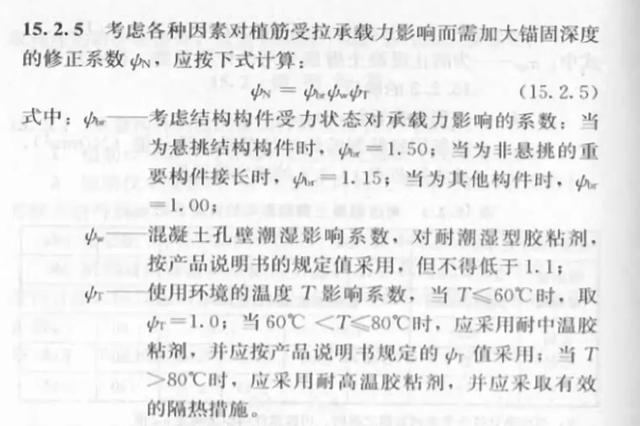 15.2.5 考虑各种因素对植筋受拉承载力影响而需加大锚固深度
的修正系数 ψN，应按下式计算：
ψN = ψbrψwψT (15.2.5)
式中：ψbr——考虑结构构件受力状态对承载力影响的系数：当
为悬挑结构构件时，ψbr=1.50；当为非悬挑的重
要构件接长时，ψbr=1.15；当为其他构件时，ψbr
=1.00；
ψw——混凝土孔壁潮湿影响系数，对耐潮湿型胶粘剂，
按产品说明书的规定值采用，但不得低于 1.1；
ψT——使用环境的温度 T 影响系数，当 T≤60℃时，取
ψT=1.0；当 60℃ <T≤80℃时，应采用耐中温胶
粘剂，并应按产品说明书规定的 ψT 值采用；当 T
>80℃时，应采用耐高温胶粘剂，并应采取有效
的隔热措施。